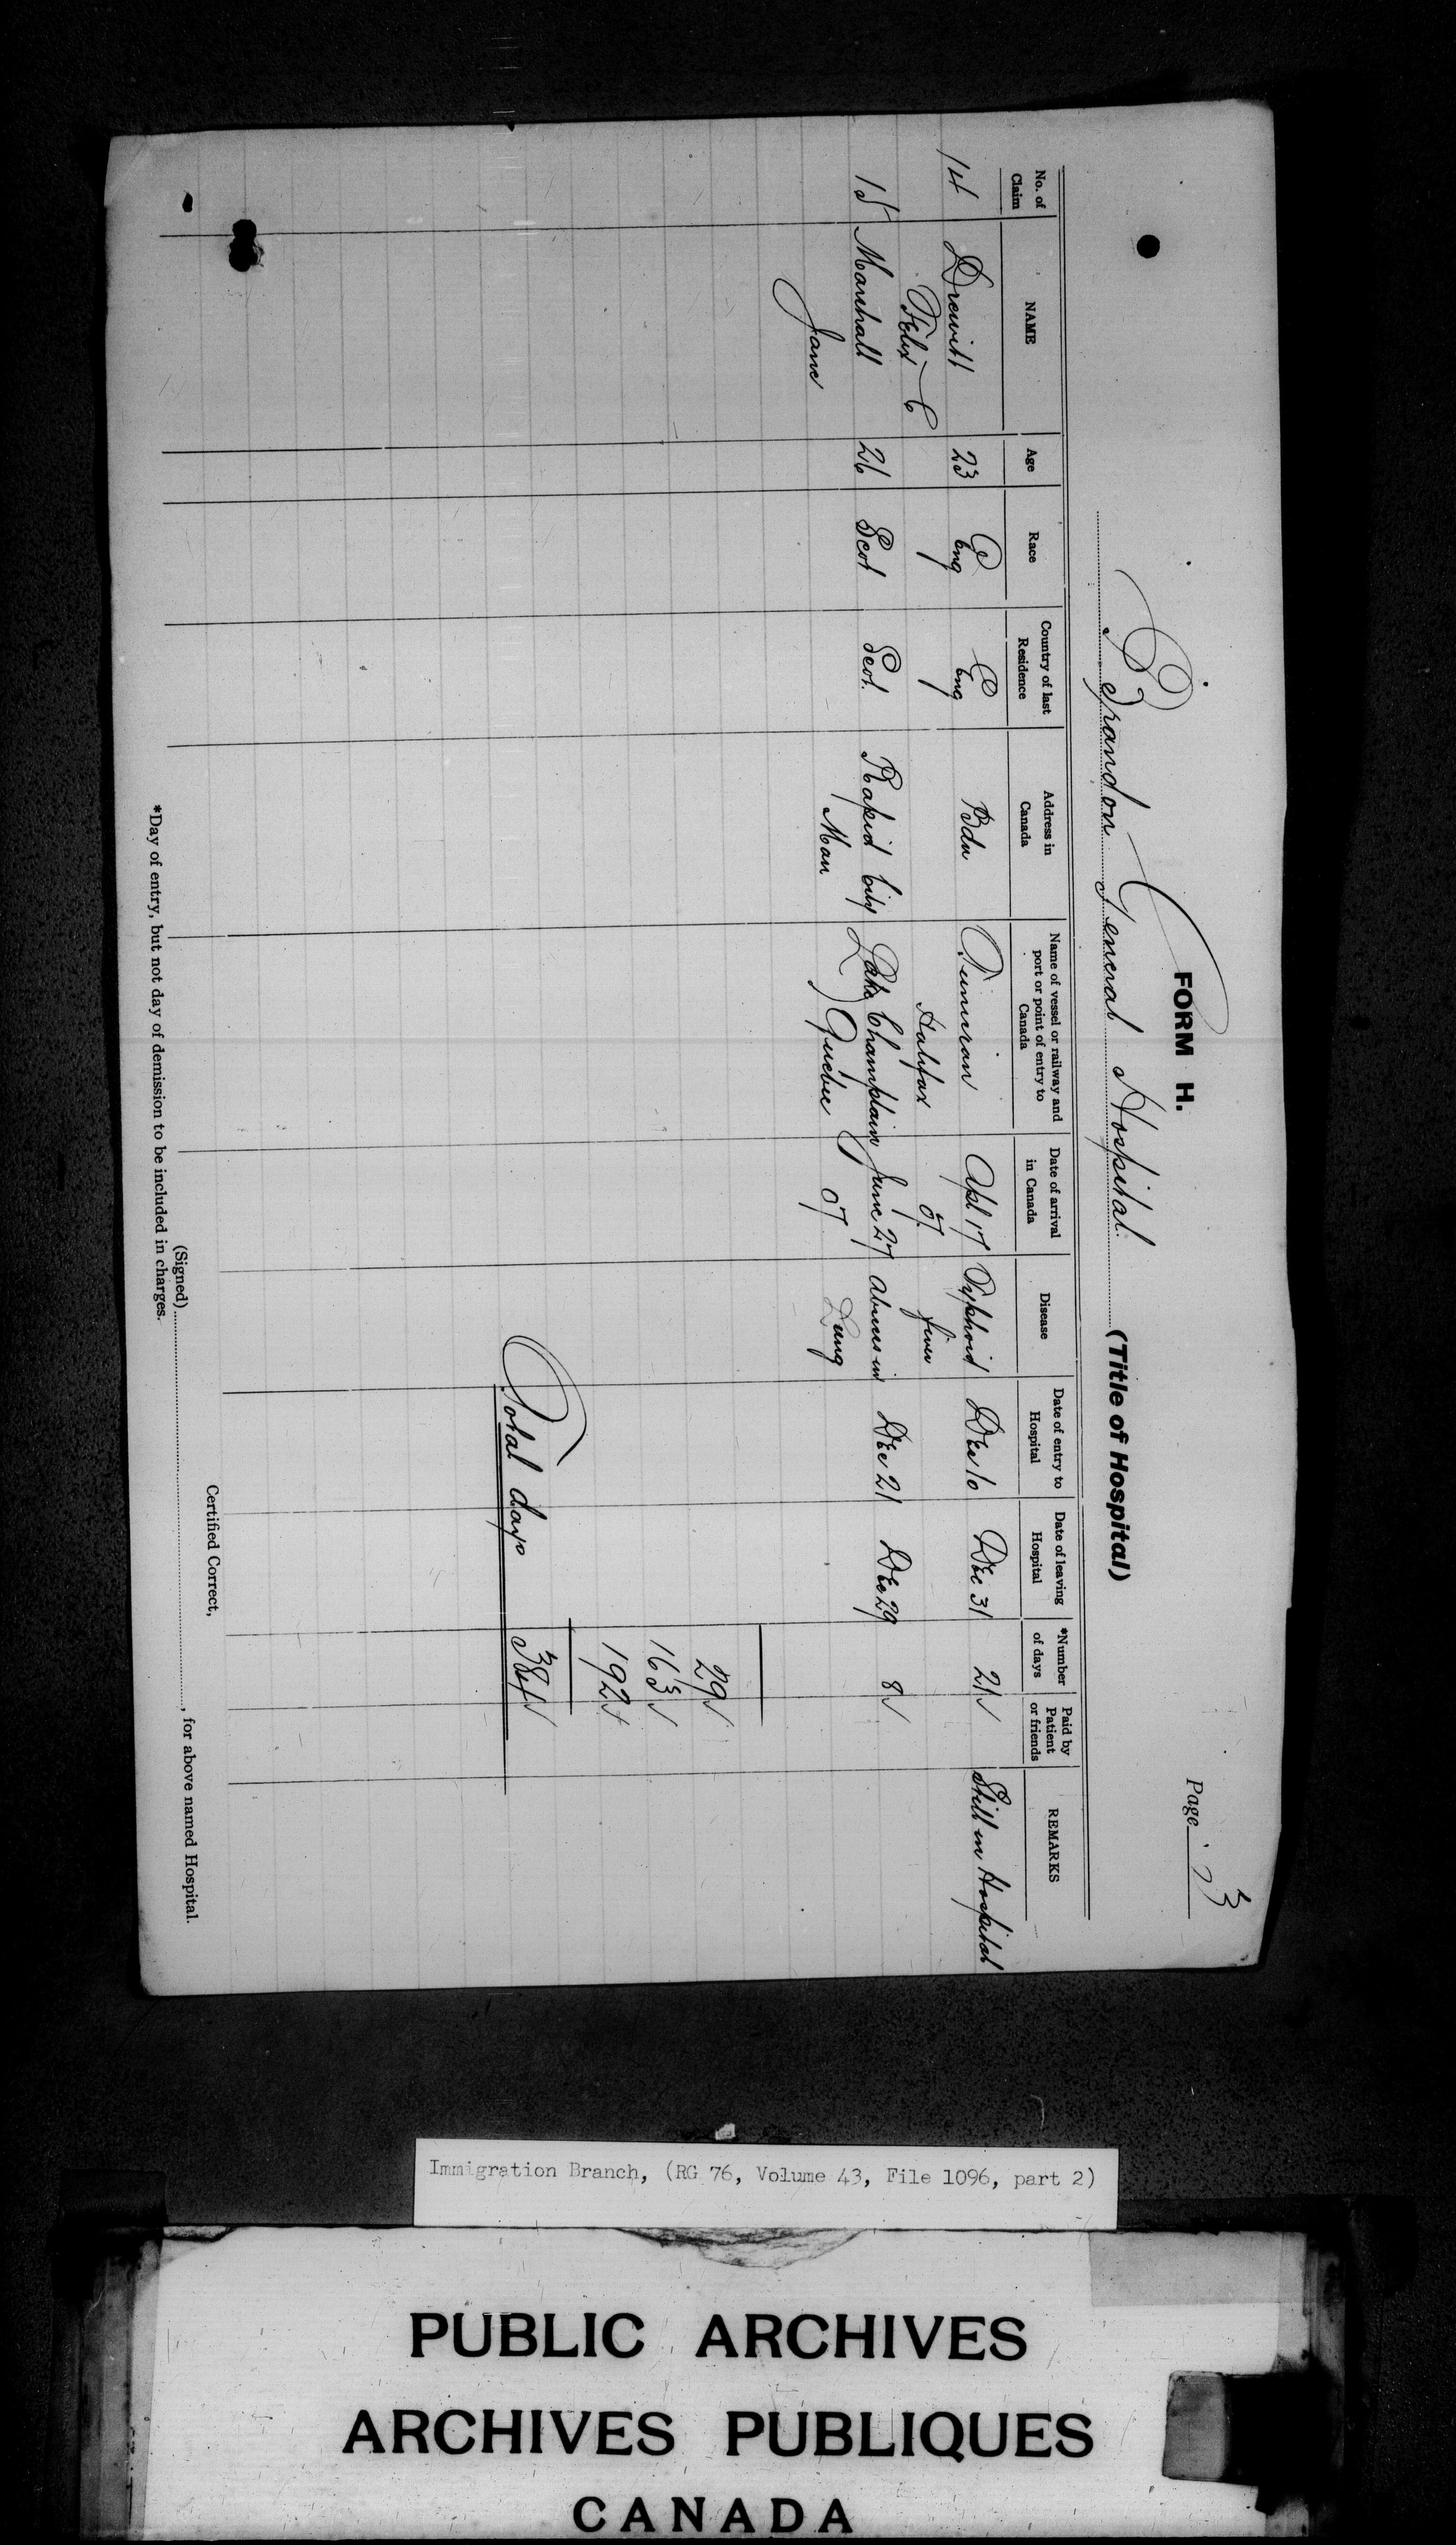 FORM H.
Page 3
Brandon General Hospital (Title of Hospital)
No. of Claim NAME Age Race Country of last Residence Address in Canada Name of vessel or railway and port or point of entry to Canada Date of arrival in Canada Disease Date of entry to Hospital Date of leaving Hospital *Number of days Paid by Patient or friends REMARKS
14 Drewitt 23 Eng Eng Bdn Tunisian Apl 17 Typhoid Dec 10 Dec 31 21✓ Still in Hospital
Felix C Halifax 07 fever
15 Marshall 26 Scot Scot. Rapid City Lake Champlain June 27 Abscess in Dec 21 Dec 29 8✓
Jane Man Quebec 07 Lung
29✓
163✓
192✓
Total days 384✓
Certified Correct,
(Signed) , for above named Hospital.
*Day of entry, but not day of demission to be included in charges.
Immigration Branch, (RG 76, Volume 43, File 1096, part 2)
PUBLIC ARCHIVES
ARCHIVES PUBLIQUES
CANADA